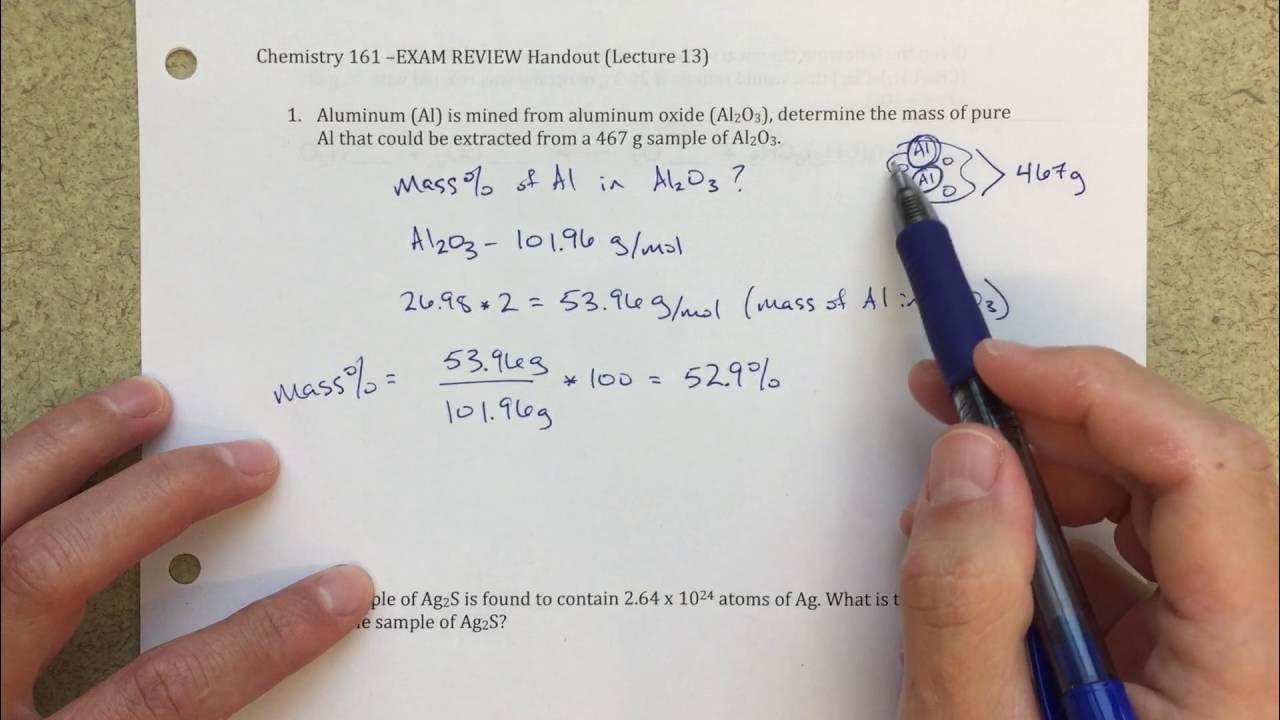 Chemistry 161 –EXAM REVIEW Handout (Lecture 13)
1. Aluminum (Al) is mined from aluminum oxide (Al₂O₃), determine the mass of pure
Al that could be extracted from a 467 g sample of Al₂O₃.
Al
Al
467g
Mass% of Al in Al₂O₃?
Al₂O₃ – 101.96 g/mol
26.98 * 2 = 53.96 g/mol (mass of Al in O₃)
mass% = 53.96g / 101.96g * 100 = 52.9%
of Ag₂S is found to contain 2.64 x 10²⁴ atoms of Ag. What is
sample of Ag₂S?